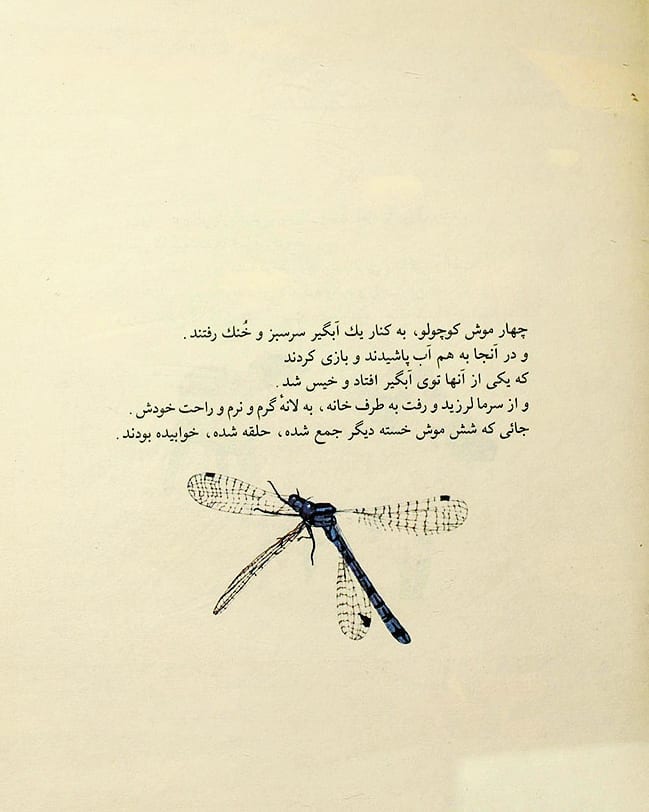 چهار موش کوچولو، به کنار یك آبگیر سرسبز و خُنك رفتند.
و در آنجا به هم آب پاشیدند و بازی کردند
که یکی از آنها توی آبگیر افتاد و خیس شد.
و از سرما لرزید و رفت به طرف خانه، به لانهٔ گرم و نرم و راحت خودش.
جائی که شش موش خسته دیگر جمع شده، حلقه شده، خوابیده بودند.